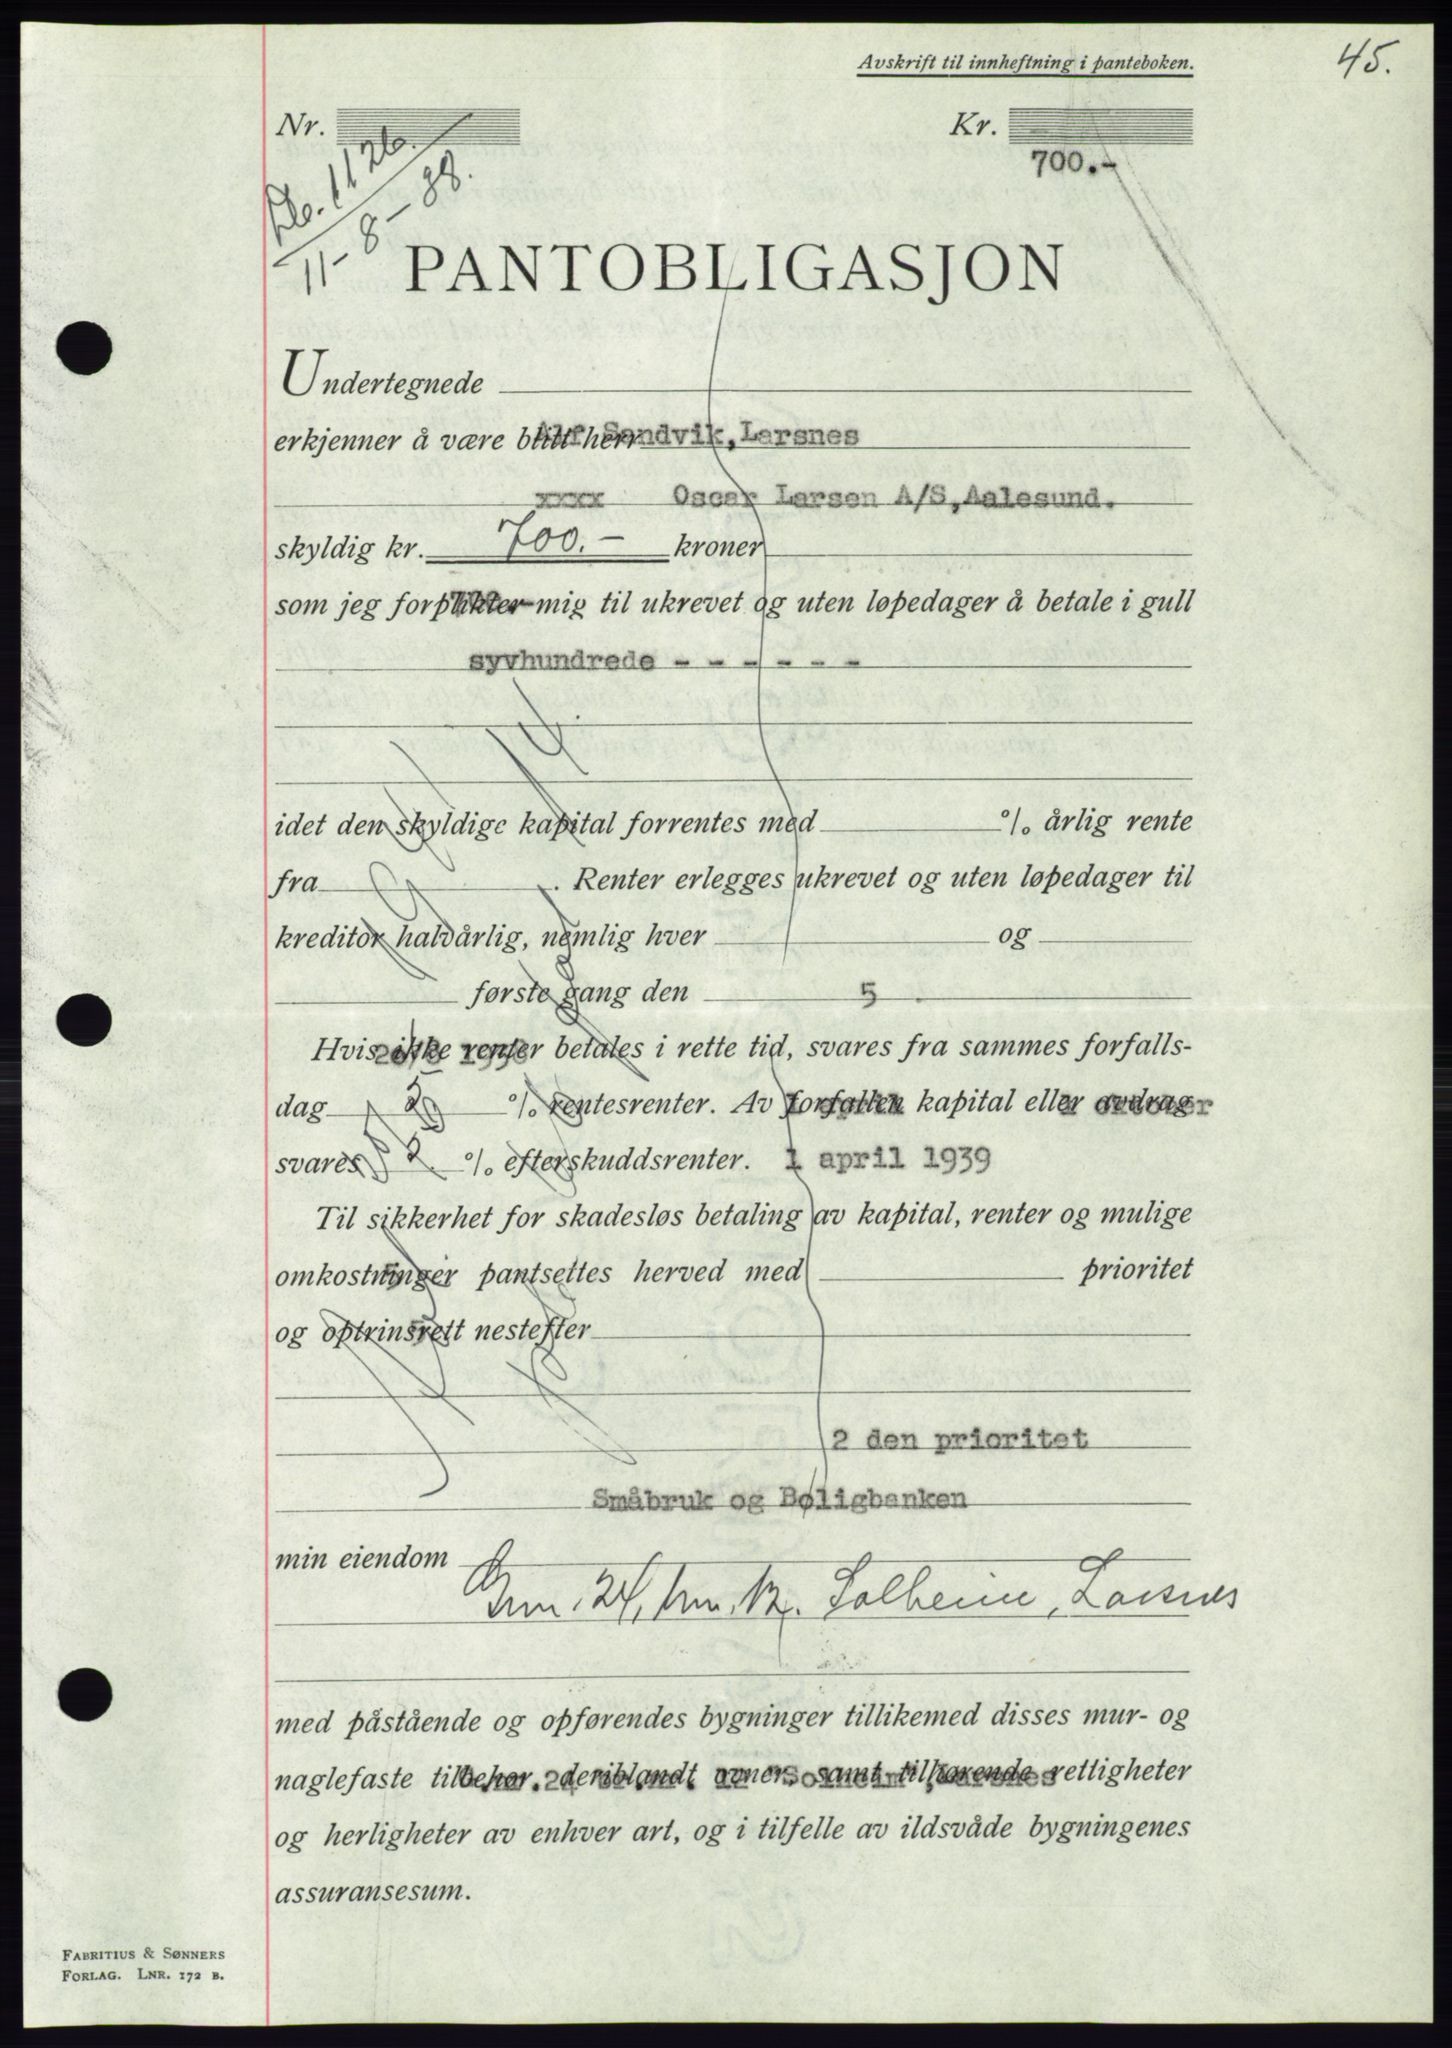 Avskrift til innheftning i panteboken.
45.
Nr.
Kr.
700.-
1126.
11-8-38.
PANTOBLIGASJON
Undertegnede
erkjenner å være blitt herr Alf Sandvik, Larsnes
xxxx Oscar Larsen A/S, Aalesund.
skyldig kr. 700.- kroner
som jeg forplikter mig til ukrevet og uten løpedager å betale i gull
syvhundrede - - - - - -
idet den skyldige kapital forrentes med % årlig rente
fra . Renter erlegges ukrevet og uten løpedager til
kreditor halvårlig, nemlig hver og
første gang den 5
Hvis ikke renter betales i rette tid, svares fra sammes forfalls-
dag % rentesrenter. Av forfallen kapital eller avdrag
svares 2 % efterskuddsrenter. 1 april 1939
Til sikkerhet for skadesløs betaling av kapital, renter og mulige
omkostninger pantsettes herved med prioritet
og optrinsrett nestefter
2 den prioritet
Småbruk og Boligbanken
min eiendom
Gnr. 24, bnr. 12. Solheim, Larsnes
med påstående og opførendes bygninger tillikemed disses mur- og
naglefaste tilbehør, deriblandt ovner, samt tilhørende rettigheter
og herligheter av enhver art, og i tilfelle av ildsvåde bygningenes
assuransesum.
FABRITIUS & SØNNERS
FORLAG. LNR. 172 B.